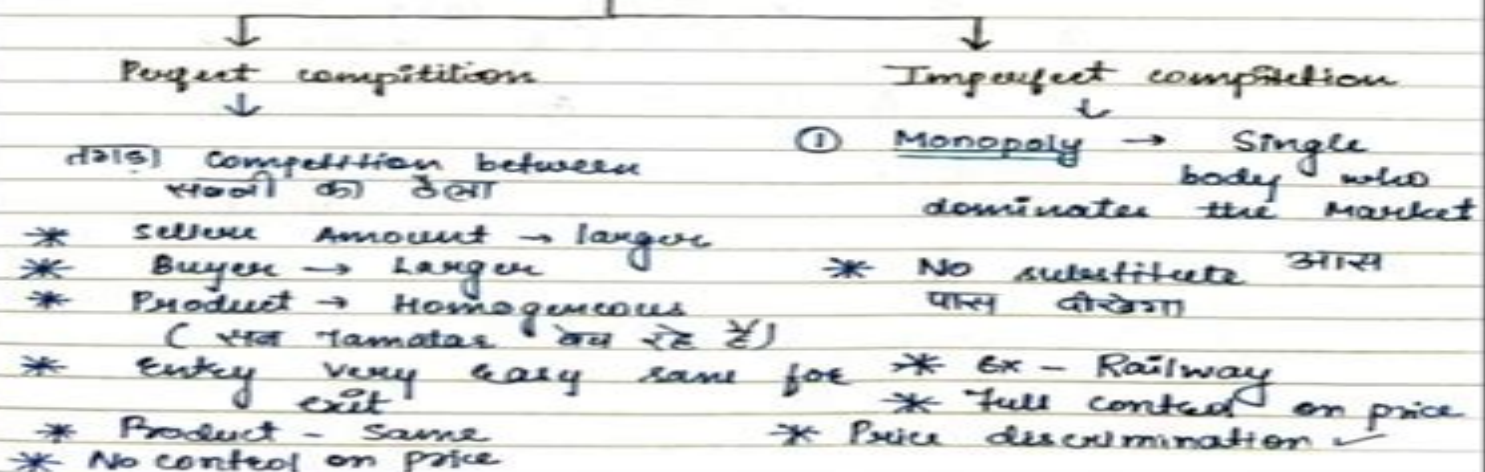 Perfect compitition
तगड़ा competition between
सब्जी का ठेला
* Sellers Amount → larger
* Buyer → Larger
* Product → Homogeneous
( सब Tamatar बेच रहे हैं)
* Entry very easy same for
exit
* Product - Same
* No control on price
Imperfect compitition
① Monopoly → Single
body who
dominates the Market
* No substitute आस
पास दीखेगा
* Ex - Railway
* Full control on price
* Price discrimination ✓